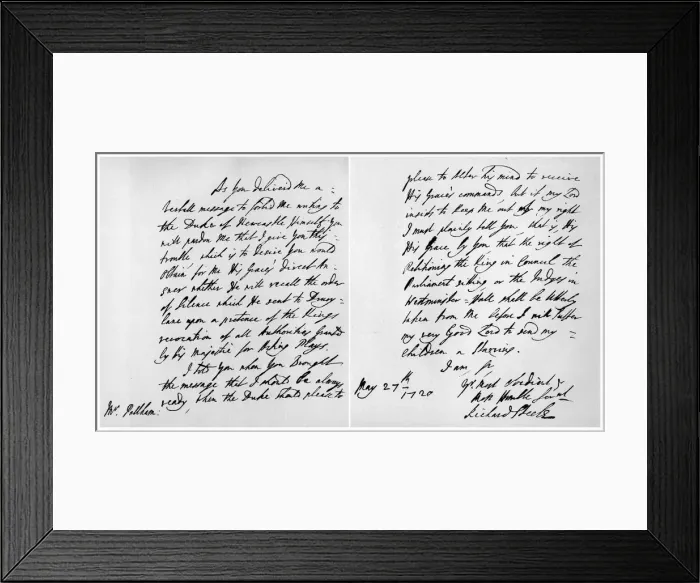 As You delivered Me a =
Verball message to forbid Me writing to
the Duke of Newcastle Himself You
will pardon Me that I give You this
trouble which is to desire You would
Obtain for Me His Grace's direct An =
swer whether He will recall the order
of Silence which He sent to Drury =
lane upon a pretence of the Kings
revocation of all Authorities Granted
by His Majestie for Acting Plays.
I told You when You brought
the message that I should be always
ready, when the Duke should please to
Mr. Pellham:
please to Alter his mind to receive
His Grace's commands but if my Lord
insists to Keep Me out of my right
I must plainly tell You, that is, His
His Grace by You that the right of
Petitioning the King in Council the
Parliament sitting or the Judges in
Westminster = Hall shall be Utterly
taken from Me before I will suffer
my very Good Lord to send my =
Children a Starving.
I am, Sr
Yr. Most Obedient &
Most Humble Servt
Richard Steele
May 27th
1720